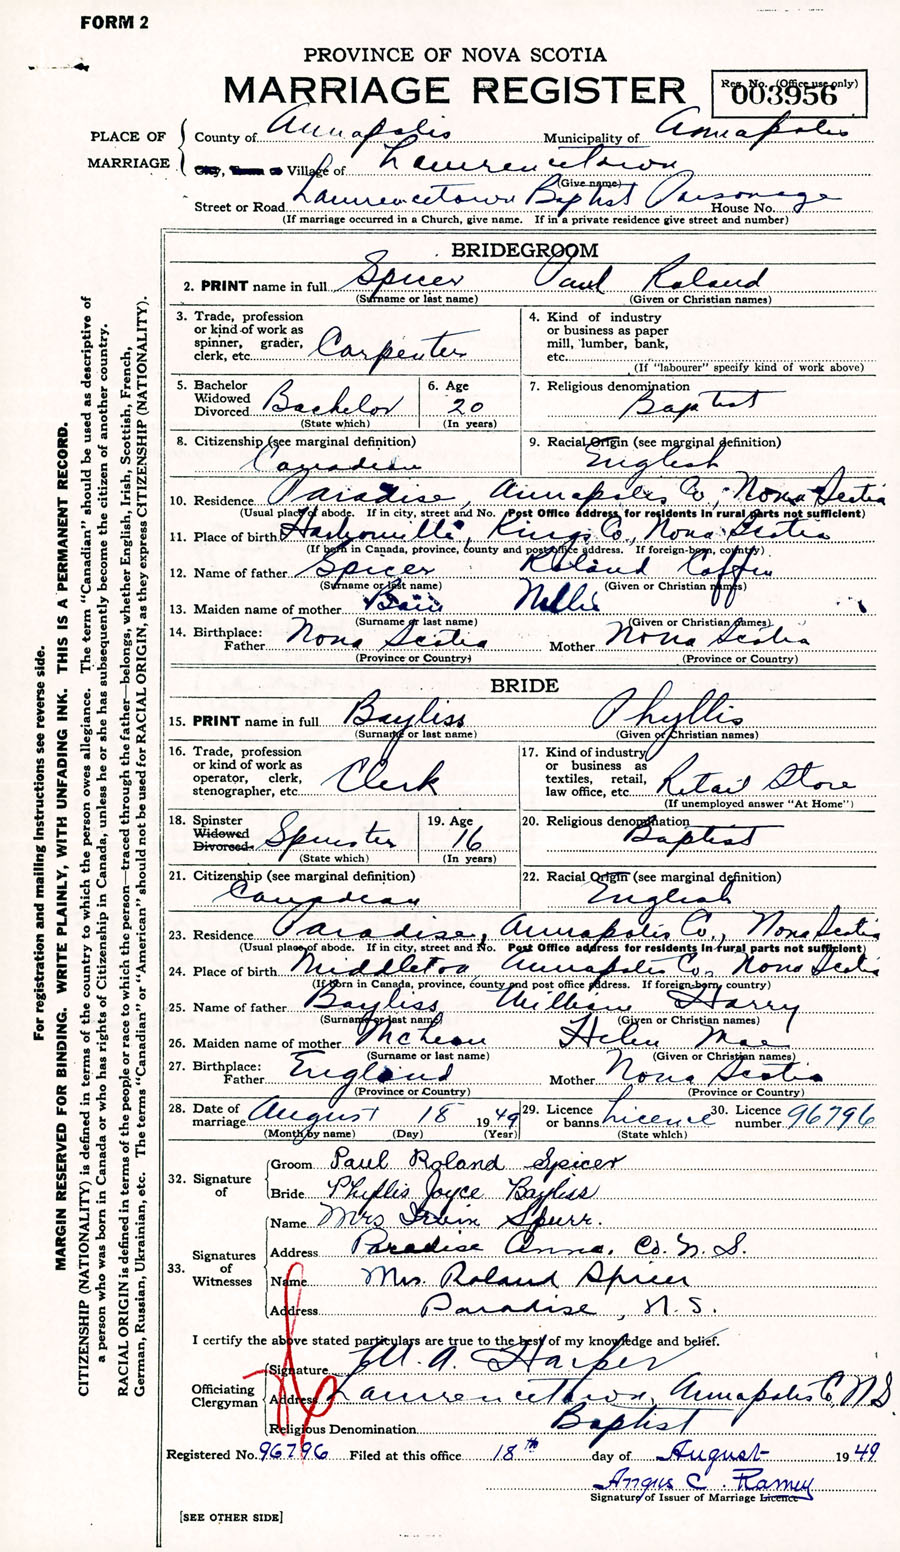 FORM 2
PROVINCE OF NOVA SCOTIA
MARRIAGE REGISTER
Reg. No. (Office use only)
003956
PLACE OF MARRIAGE
County of Annapolis Municipality of Annapolis
City, Town or Village of Lawrencetown
(Give name)
Street or Road Lawrencetown Baptist Parsonage House No.
(If marriage occurred in a Church, give name. If in a private residence give street and number)
BRIDEGROOM
2. PRINT name in full Spicer Paul Roland
(Surname or last name) (Given or Christian names)
3. Trade, profession or kind of work as spinner, grader, clerk, etc. Carpenter
4. Kind of industry or business as paper mill, lumber, bank, etc.
(If "labourer" specify kind of work above)
5. Bachelor Widowed Divorced Bachelor
(State which)
6. Age 20
(In years)
7. Religious denomination Baptist
8. Citizenship (see marginal definition) Canadian
9. Racial Origin (see marginal definition) English
10. Residence Paradise, Annapolis Co., Nova Scotia
(Usual place of abode. If in city, street and No. Post Office address for residents in rural parts not sufficient)
11. Place of birth Harbourville, Kings Co., Nova Scotia
(If born in Canada, province, county and post office address. If foreign-born, country)
12. Name of father Spicer Roland Coffin
(Surname or last name) (Given or Christian names)
13. Maiden name of mother Nellie
(Surname or last name) (Given or Christian names)
14. Birthplace: Father Nova Scotia Mother Nova Scotia
(Province or Country) (Province or Country)
BRIDE
15. PRINT name in full Bayliss Phyllis
(Surname or last name) (Given or Christian names)
16. Trade, profession or kind of work as operator, clerk, stenographer, etc. Clerk
17. Kind of industry or business as textiles, retail, law office, etc. Retail Store
(If unemployed answer "At Home")
18. Spinster Widowed Divorced Spinster
(State which)
19. Age 16
(In years)
20. Religious denomination Baptist
21. Citizenship (see marginal definition) Canadian
22. Racial Origin (see marginal definition) English
23. Residence Paradise, Annapolis Co., Nova Scotia
(Usual place of abode. If in city, street and No. Post Office address for residents in rural parts not sufficient)
24. Place of birth Middleton, Annapolis Co., Nova Scotia
(If born in Canada, province, county and post office address. If foreign-born, country)
25. Name of father Bayliss William Harry
(Surname or last name) (Given or Christian names)
26. Maiden name of mother McLean Helen Mae
(Surname or last name) (Given or Christian names)
27. Birthplace: Father England Mother Nova Scotia
(Province or Country) (Province or Country)
28. Date of marriage August 18 1949
(Month by name) (Day) (Year)
29. Licence or banns Licence
(State which)
30. Licence number 96796
32. Signature of
Groom Paul Roland Spicer
Bride Phyllis Joyce Bayliss
33. Signatures of Witnesses
Name Mrs Irvin Spurr.
Address Paradise Anna. Co. N.S.
Name Mrs. Roland Spicer
Address Paradise, N.S.
I certify the above stated particulars are true to the best of my knowledge and belief.
Officiating Clergyman
Signature M. A. Harper
Address Lawrencetown, Annapolis Co, N S
Religious Denomination Baptist
Registered No. 96796 Filed at this office 18th day of August 1949
Angus C. Ramey
Signature of Issuer of Marriage Licence
[SEE OTHER SIDE]
For registration and mailing instructions see reverse side.
MARGIN RESERVED FOR BINDING. WRITE PLAINLY, WITH UNFADING INK. THIS IS A PERMANENT RECORD.
CITIZENSHIP (NATIONALITY) is defined in terms of the country to which the person owes allegiance. The term "Canadian" should be used as descriptive of
a person who was born in Canada or who has rights of Citizenship in Canada, unless he or she has subsequently become the citizen of another country.
RACIAL ORIGIN is defined in terms of the people or race to which the person—traced through the father—belongs, whether English, Irish, Scottish, French,
German, Russian, Ukrainian, etc. The terms "Canadian" or "American" should not be used for RACIAL ORIGIN, as they express CITIZENSHIP (NATIONALITY).